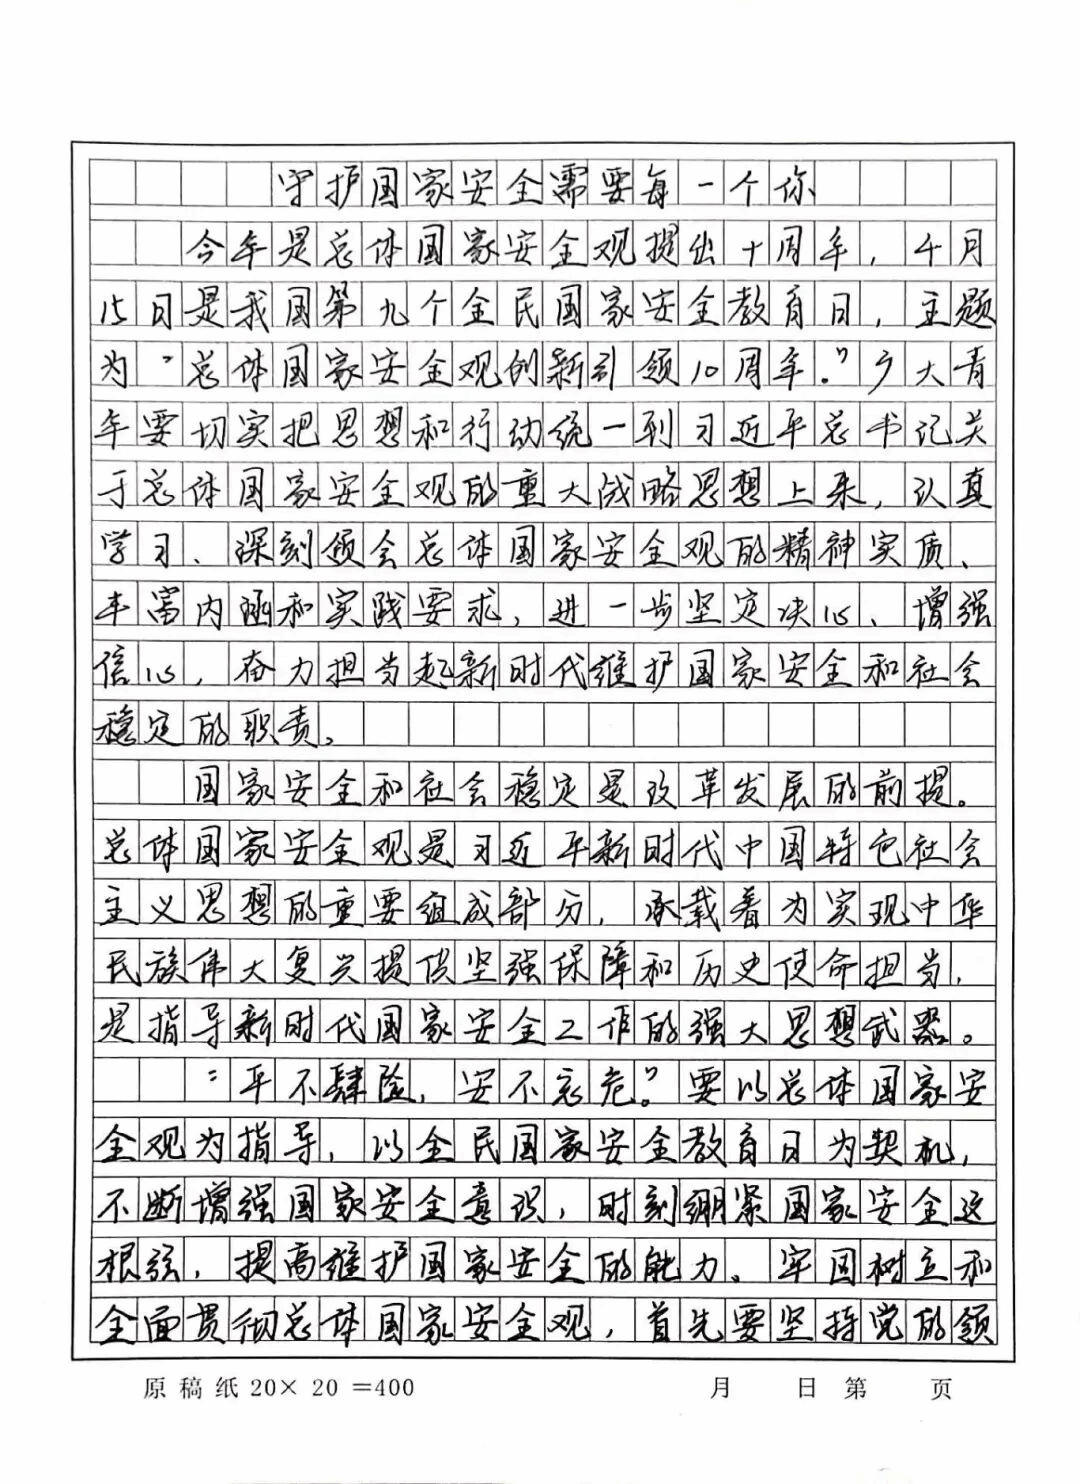 守护国家安全需要每一个你
今年是总体国家安全观提出十周年，4月
15日是我国第九个全民国家安全教育日，主题
为“总体国家安全观创新引领10周年.”广大青
年要切实把思想和行动统一到习近平总书记关
于总体国家安全观的重大战略思想上来，认真
学习、深刻领会总体国家安全观的精神实质、
丰富内涵和实践要求，进一步坚定决心、增强
信心，奋力担当起新时代维护国家安全和社会
稳定的职责。
国家安全和社会稳定是改革发展的前提。
总体国家安全观是习近平新时代中国特色社会
主义思想的重要组成部分，承载着为实现中华
民族伟大复兴提供坚强保障和历史使命担当，
是指导新时代国家安全工作的强大思想武器。
“平不肆险，安不忘危。”要以总体国家安
全观为指导，以全民国家安全教育日为契机，
不断增强国家安全意识，时刻绷紧国家安全这
根弦，提高维护国家安全的能力。牢固树立和
全面贯彻总体国家安全观，首先要坚持党的领
原稿纸20×20＝400 月 日 第 页